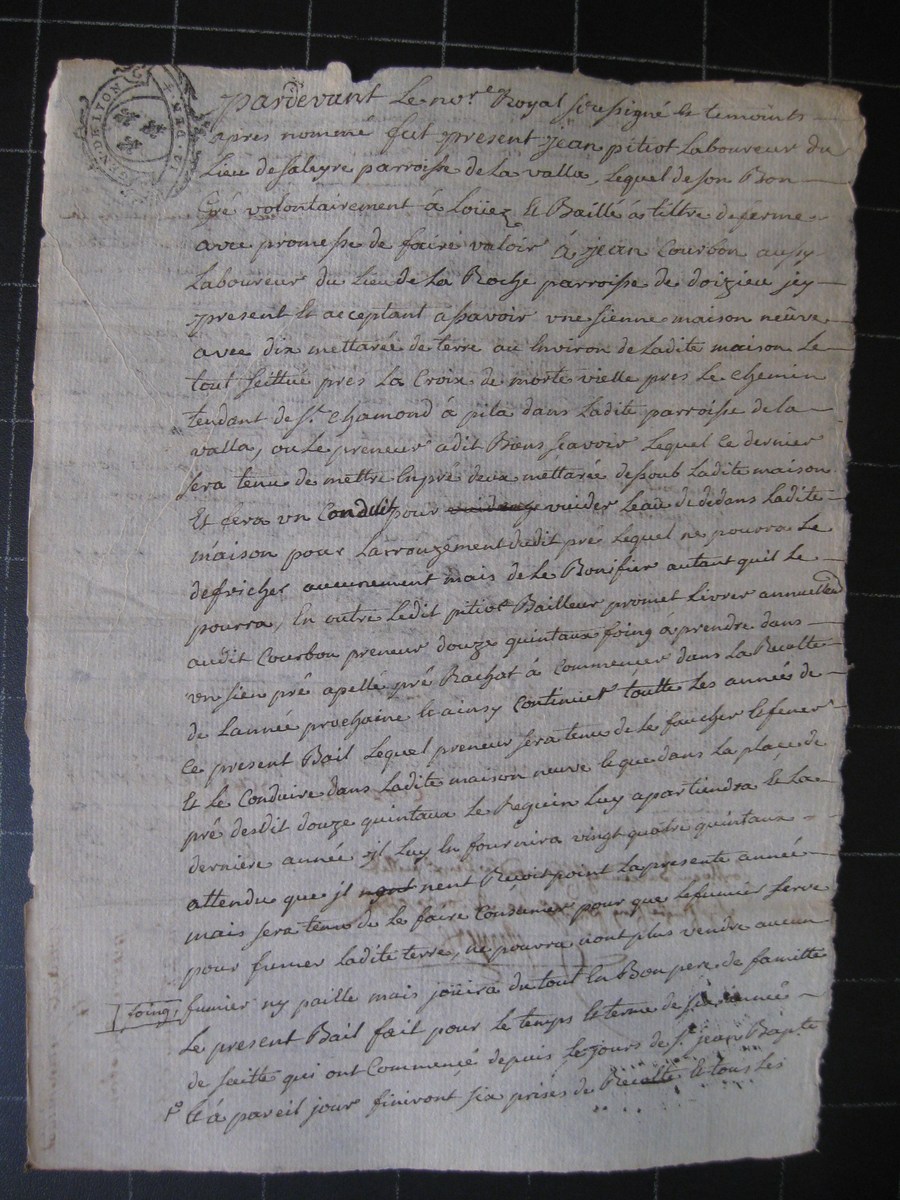 GEN. DE LYON
pardevant Le no.re Royal soussigné et temoints
apres nommé fut present jean pitiot Laboureur du
Lieu de saleyre parroisse de La valla, Lequel de son Bon
Gré volontairement à Loüez Et Baillé à tiltre deferme
avec promesse de faire valoir à jean Courbon aussy
Laboureur du Lieu de La Roche parroisse de doizieu jcy
present Et acceptant assavoir vne sienne maison neûve
avec dix mettarée de terre au Environ de Ladite maison Le
tout scittué prés La Croix de morte vielle pres Le chemin
tendant de S.t chamond à pila dans Ladite parroisse de la
valla, ou Le preneur a dit Biens scavoir Lequel Ce dernier
sera tenu de mettre En pré deux mettarée dessoub Ladite maison
Et fera vn Conduit pour vuider Leaû de dedans Ladite
maison pour Larrouzement dudit pré Lequel ne pourra Le
defricher aucunement mais de Le Bonifier autant quil Le
pourra, En outre Ledit pitiot Bailleur promet Livrer annuellem.t
audit Courbon preneur douze quintaux foing à prendre dans
vn sien pré apellé pré Rachat à Commencer dans La Recolte
de Lannée prochaine Et ainsy Continuer toutte Les année de
Ce present Bail Lequel preneur sera tenu de Le faucher Lefener
Et Le Conduire dans Ladite maison neuve Et que dans La place de
pré desdit douze quintaux Le Reguin Luy apartiendra Et La
derniere année jl Luy En fournira vingt quatre quintaux
attendu que jl nent Reçoit point La presente année
mais sera tenu de Le faire Consumer pour que Lefumier serve
pour fumer Ladite terre, ne pourra nont plus vendre aucun
foing, fumier ny paille mais joüira du tout En Bon pere de famille
Le present Bail fait pour Le temps Et terme de six année
de suitte qui ont Commencé depuis Le jours de S.t jean Bapte
Et à pareil jour finiront six prises de Recolte Et tous Les